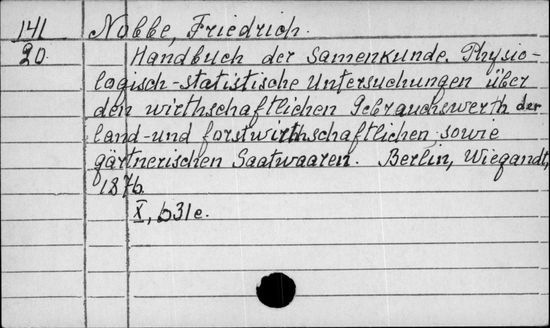 141 Nobbe, Friedrich.
20. Handbuch der Samenkunde. Physio-
logisch-statistische Untersuchungen über
den wirthschaftlichen Gebrauchswerth der
land-und forstwirthschaftlichen sowie
gärtnerischen Saatwaaren. Berlin, Wiegandt,
1876.
X, 631 e.